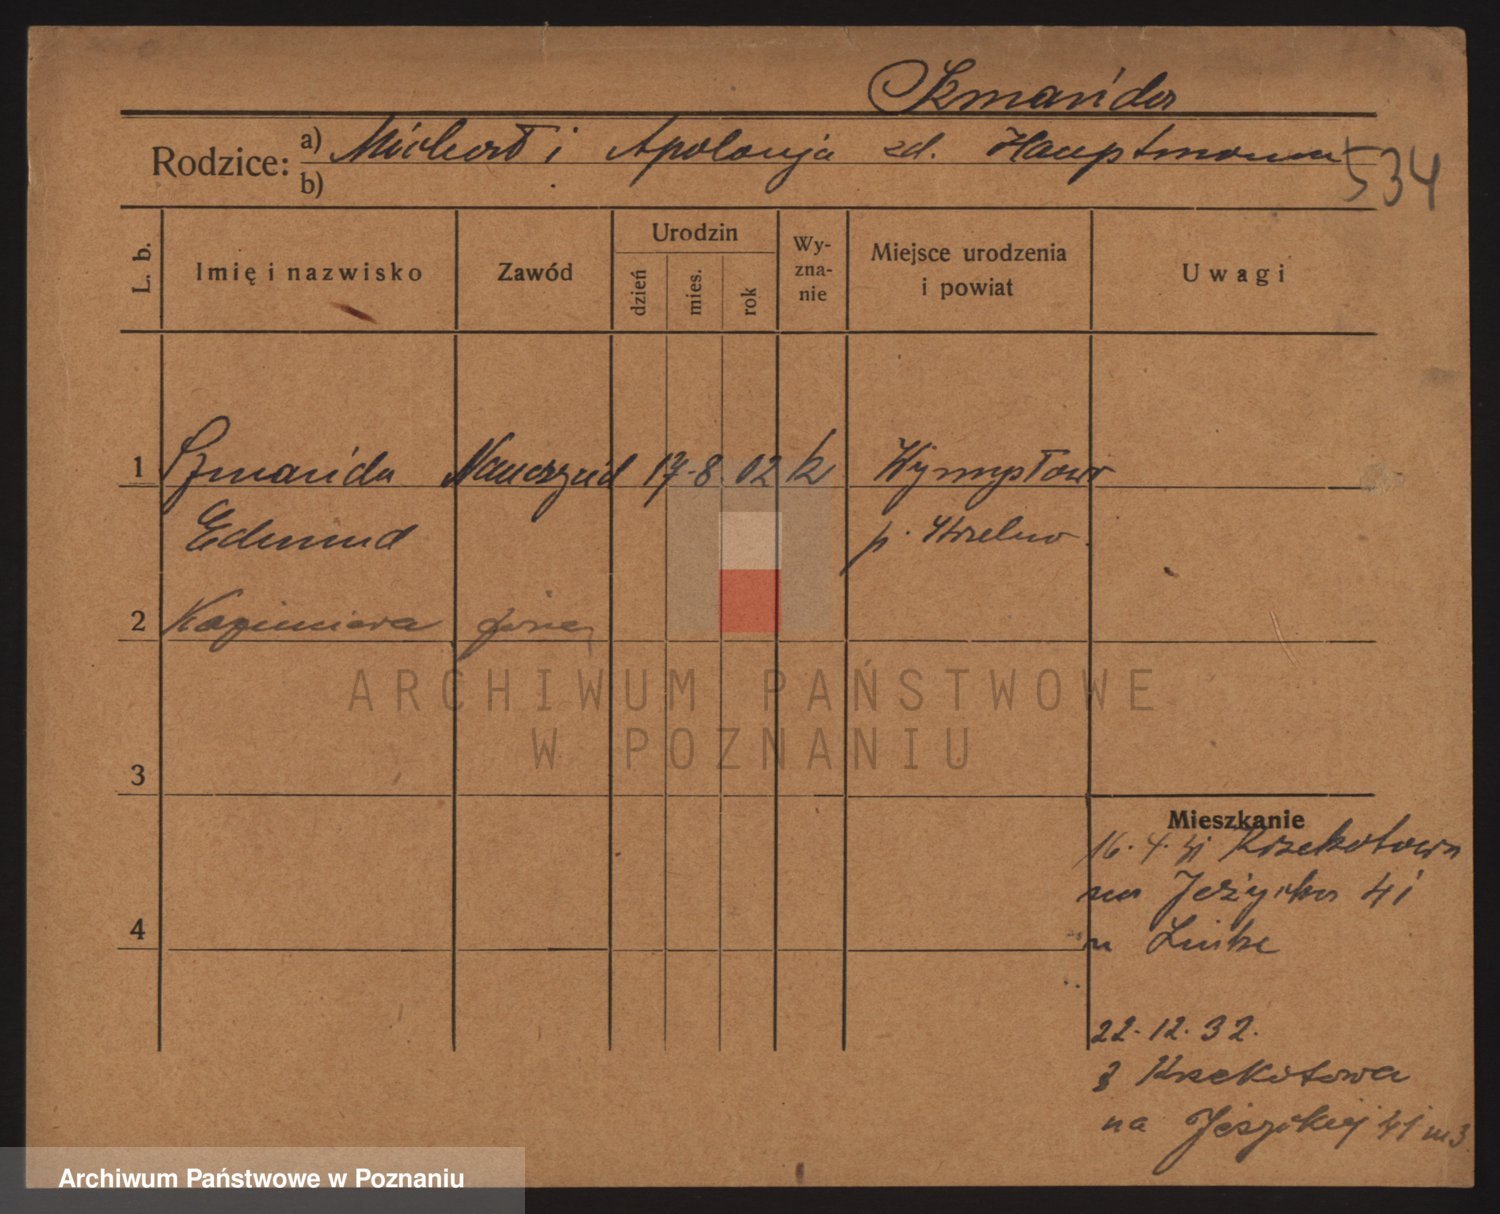 Szmańda
Rodzice: a) Michał i Apolonja zd. Hauptmann
b)
534
L. b.
Imię i nazwisko
Zawód
Urodzin
dzień
mies.
rok
Wy-
zna-
nie
Miejsce urodzenia
i powiat
Uwagi
1 Szmańda Nauczyciel 17. 8. 02 k Wymysłowo
Edmund p. Strzelno.
2 Kazimiera żona
3
4
ARCHIWUM PAŃSTWOWE
W POZNANIU
Mieszkanie
16. 4. 31 Krzekotowa
na Jeżycka 41
u
22. 12. 32.
z Krzekotowa
na Jeżyckiej 41 m 3
Archiwum Państwowe w Poznaniu